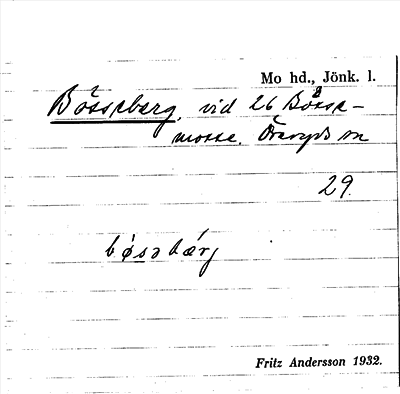 Mo hd., Jönk. l.
Bösseberg, vid 26 Bösse-
mosse. Öreryds sn
29.
bǿsəbærj
Fritz Andersson 1932.